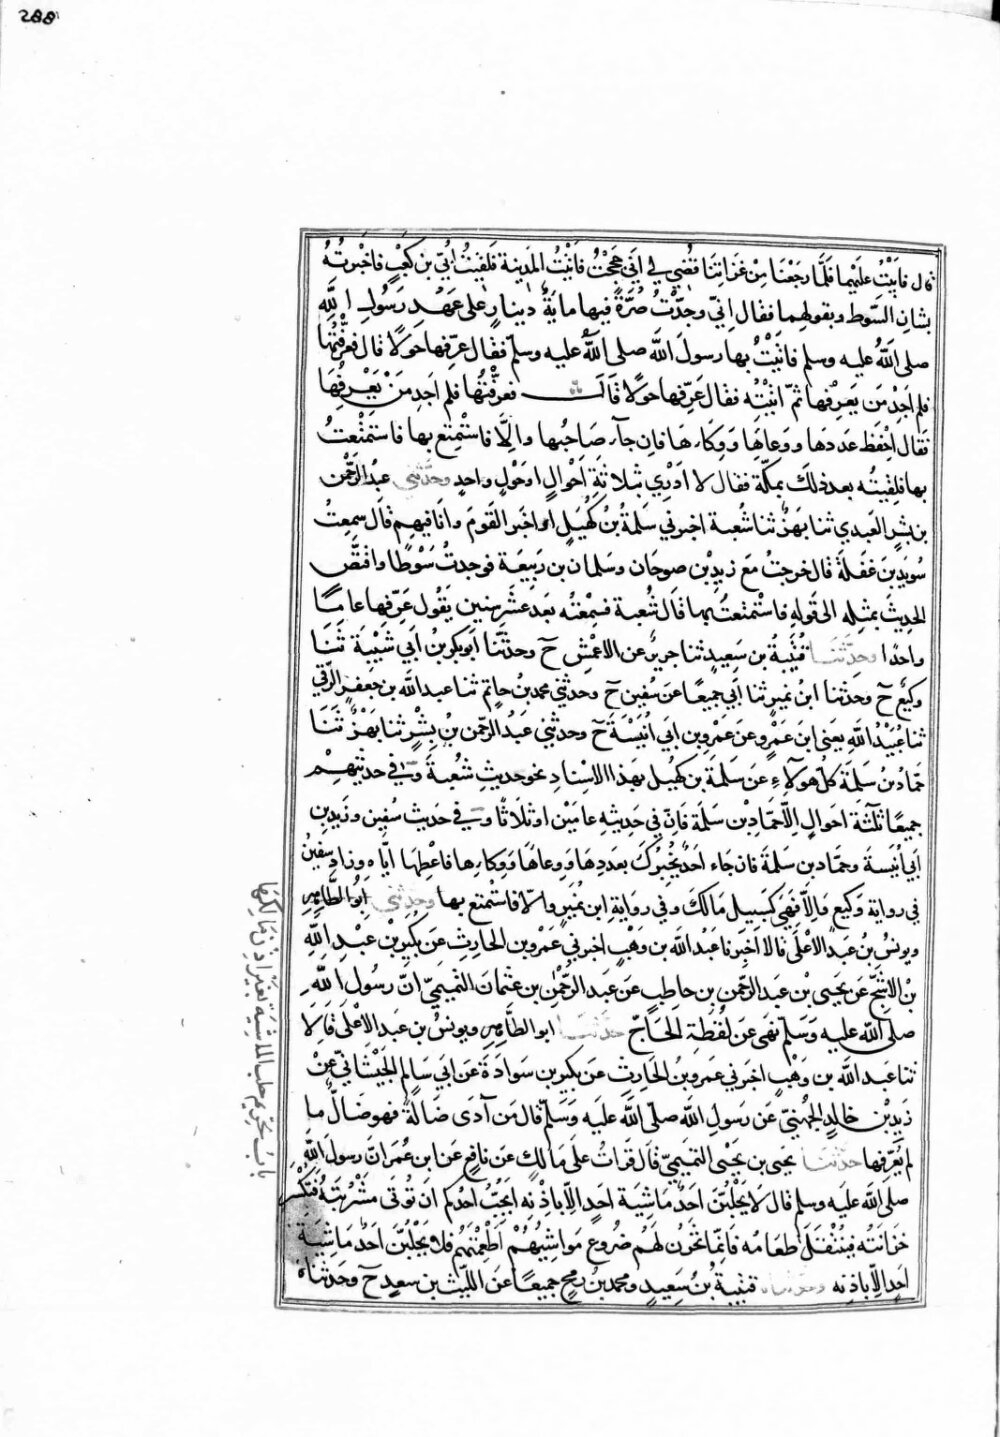 288
قال فابَيْتُ عليهما فلَمّا رجَعْنا مِنْ غزاتِنَا قُضي لي اَنّي حَججْتُ فاتيْتُ المَدينة فلقيتُ اُبيّ بن كعْبٍ فاخبرتُهُ
بشانِ السّوط وبقولهما فقال اِنّي وجدْتُ صُرّة فيها ماية دينارٍ على عَهْدِ رَسُولِ اللّه
صلى اللّهُ عليه وسلم فاتيْتُ بها رسولَ اللّه صلى اللّه عليه وسلم فقال عرّفها حولًا قال فعرّفتُها
فلم اَجِدْ مَن يَعرِفُها ثمّ اتيْتُه فقال عَرّفها حولًا قَالَ فعرّفْتُها فلم اَجد مَنْ يَعْرِفُها
فقال احْفظ عَددها ووعاهَا ووِكاءها فاِن جآء صَاحبُها واِلّا فاسْتمتِع بها فاستمتعتُ
بها فلقيتُه بعد ذلك بمكّة فقال لا اَدْرِي بثلاثةِ اَحْوالٍ اوحَولٍ واحدٍ وحدّثني عبدُ الرّحمن
بن بِشرٍ العَبدي ثنا بَهزٌ ثنا شُعبة اخبرني سَلمةُ بنُ كُهَيلٍ او اخبر القَومَ وانا فيهم قال سمعتُ
سُويدَ بن غَفلةَ قال خرجتُ مَعَ زيدِ بْن صوحان وسَلمان بن رَبيعَة فوجدتُ سَوْطًا واقتصّ
الحديثَ بمثله الى قوله فاسْتمتعتُ بها قال شُعبة فسمعتُه بعد عشر سنين يَقُول عَرّفها عامًا
واحدًا وحدّثنا قُتَيبةُ بن سَعيدٍ ثنا جريرٌ عن الاعْمشِ ح وحدثنا ابو بكر بنُ اَبي شَيْبَة ثنَا
وكيعٌ ح وحَدثنا ابنُ نميرٍ ثنا اَبي جميعًا عن سُفين ح وحدثني محمد بنُ حاتمٍ ثنا عبد اللّه بن جعفرٍ الرّقي
ثنا عُبيْدُ اللّهِ يعني ابن عَمْرٍو عن زيد بن اَبي اُنَيْسَةَ ح وحدثني عَبدُ الرّحمن بنُ بِشْرٍ ثنا بَهْزٌ ثَنَا
حَمّادُ بنُ سَلمَة كلّ هولآءِ عَن سَلمَة بن كهَيل بهَذا الاسْناد نحو حديثِ شُعبةَ وَفي حديثِهِمْ
جميعًا ثلثَة اَحوالٍ الّا حمّاد بنَ سَلمَة فانّ في حَديثِه عامَيْن اوثلَاثًا وفي حَديث سُفين وزيدِ بن
اَبي اُنَيْسَة وحمّادِ بن سلمةَ فان جاء احَدٌ يُخْبِرُكَ بعَددِها وَوِعاها وَوِكاءِها فاعْطِهَا اِيّاه وزادَ سفين
في رواية وَكيع وَالّا فَهِيَ كسَبيل مَالكَ وفي روايةِ ابن نُمَيرٍ والّا فاسْتمتِع بها وحدّثني ابُو الطّاهِرِ
ويونسُ بنُ عَبد الاعْلَى قالا اَخبَرنا عَبْدُ اللّه بن وهْبٍ اخبرني عَمْرو بن الحارِثِ عَن بكيرِ بن عَبْدِ اللّهِ
بْن الاشجّ عَن يَحيى بْن عَبد الرّحمنِ بن حاطِبٍ عَن عَبد الرّحمٰنِ بن عُثمانَ التّيميِّ انّ رسُولَ اللّهِ
صلى اللّه عليه وَسَلم نهى عَن لُقَطَةِ الحَاجّ حدّثنَا ابو الطّاهِرِ ويونُسُ بن عبد الاعْلى قَالا
ثنا عَبد اللّه بن وَهْبٍ اَخبرني عمرو بنُ الحَارِثِ عَن بكير بن سَوادَةَ عَن اَبي سَالمٍ الجَيْشاني عَنْ
زَيدِ بْن خالِدٍ الجُهنيّ عَن رَسولِ اللّه صلّى اللّه عليَه وَسَلم قال مَن آوَى ضَالةً فهو ضَالٌّ ما
لم يُعَرّفها حدّثنَا يَحيى بن يَحيَى التميميّ قال قَراتُ علَى مَالكٍ عَن نَافِعٍ عَن ابن عُمَر انَّ رَسولَ اللّه
صلّى اللّه عليَه وسلم قال لا يَحْلُبَنّ اَحدٌ مَاشيَة اَحدٍ الّا باِذنِه اَيحبُّ احدُكم ان تُوتَى مَشرُبَتُهُ فَتُكسَر
خزَانتُه فيُنْتقَلَ طعَامُه فَاِنّما تخزُن لَهُم ضُروعُ مَواشِيْهِمْ اَطعِمَتَهُم فلا يَحْلُبَنّ اَحدٌ مَاشِيَة
احَدٍ اِلّا باذنِه وحدثناه قتيبةُ بنُ سَعيدٍ ومحمد بنُ رُمحٍ جميعًا عَن الليث بن سعدٍ ح وحدثناهُ
بابُ تحريم حلب الماشِيَة بغَير اذْن مَالِكِهَا